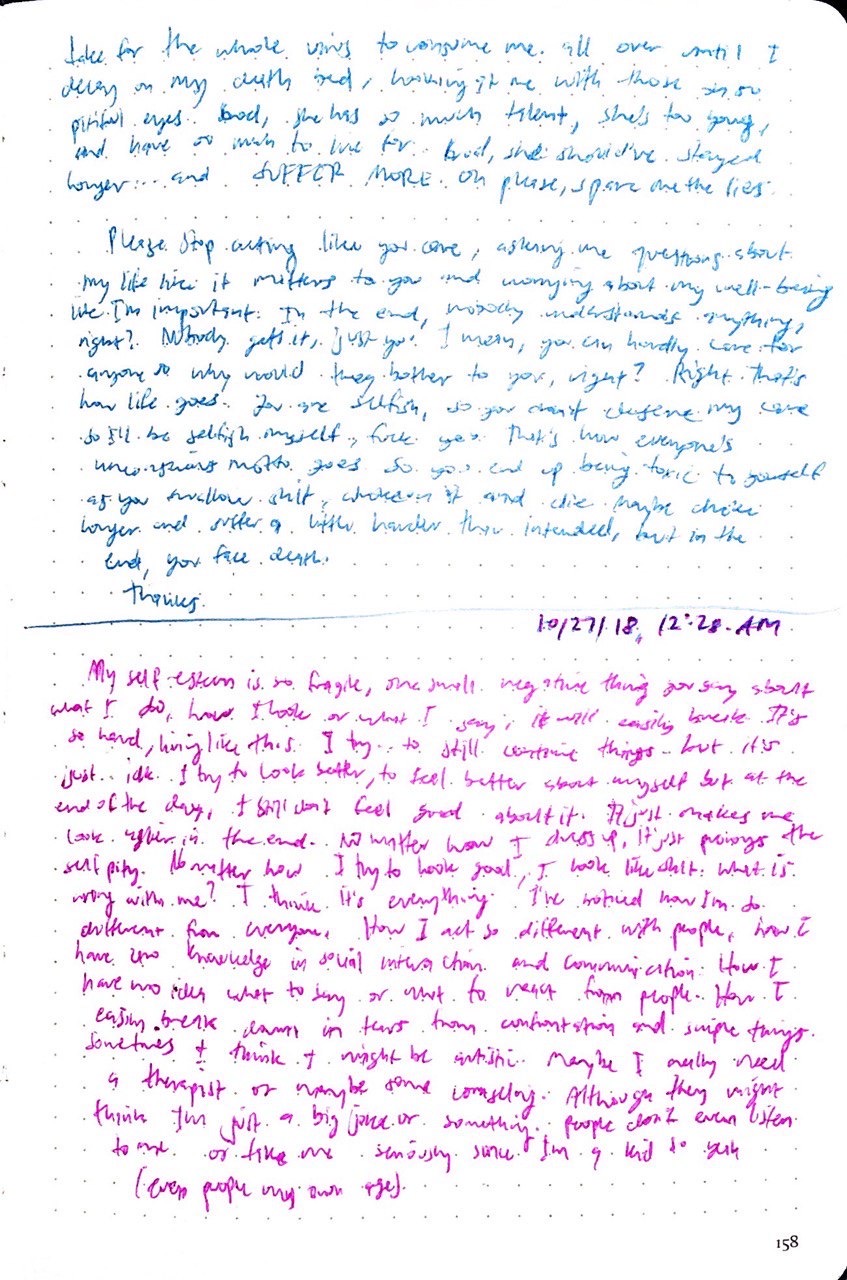 take for the whole virus to consume me all over until I
decay on my death bed, looking at me with those oh so
pitiful eyes. God, she has so much talent, she's too young,
and have so much to live for. God, she should've stayed
longer... and SUFFER MORE. Oh please, spare me the lies.
Please stop acting like you care, asking me questions about
my life like it matters to you and worrying about my well-being
like I'm important. In the end, nobody understands anything,
right? Nobody gets it, just you. I mean, you can hardly care for
anyone so why would they bother to you, right? Right. That's
how life goes. You are selfish, so you don't deserve my care
so I'll be selfish myself, fuck you. That's how everyone's
unconscious motto goes. So you end up being toxic to yourself
as you swallow shit, choke on it and die. Maybe choke
longer and suffer a little harder than intended, but in the
end, you face death.
Thanks.
10/27/18, 12:28 AM
My self esteem is so fragile, one small negative thing you say about
what I do, how I look or what I say, it will easily break. It's
so hard, living like this. I try to still continue things but it's
just.. idk. I try to look better, to feel better about myself but at the
end of the day, I still don't feel good about it. It just makes me
look uglier in the end. No matter how I dress up, it just the
self pity. No matter how I try to look good, I look like shit. What is
wrong with me? I think it's everything. I've noticed how I'm so
different from everyone. How I act so different with people, how I
have zero knowledge in social interaction and communication. How I
have no idea what to say or what to react from people. How I
easily break down in tears from confrontation and simple things.
Sometimes I think I might be autistic. Maybe I really need
a therapist or maybe some counseling. Although they might
think I'm just a big joke or something. People don't even listen
to me or take me seriously since I'm a kid so yeah
(even people my own age).
158